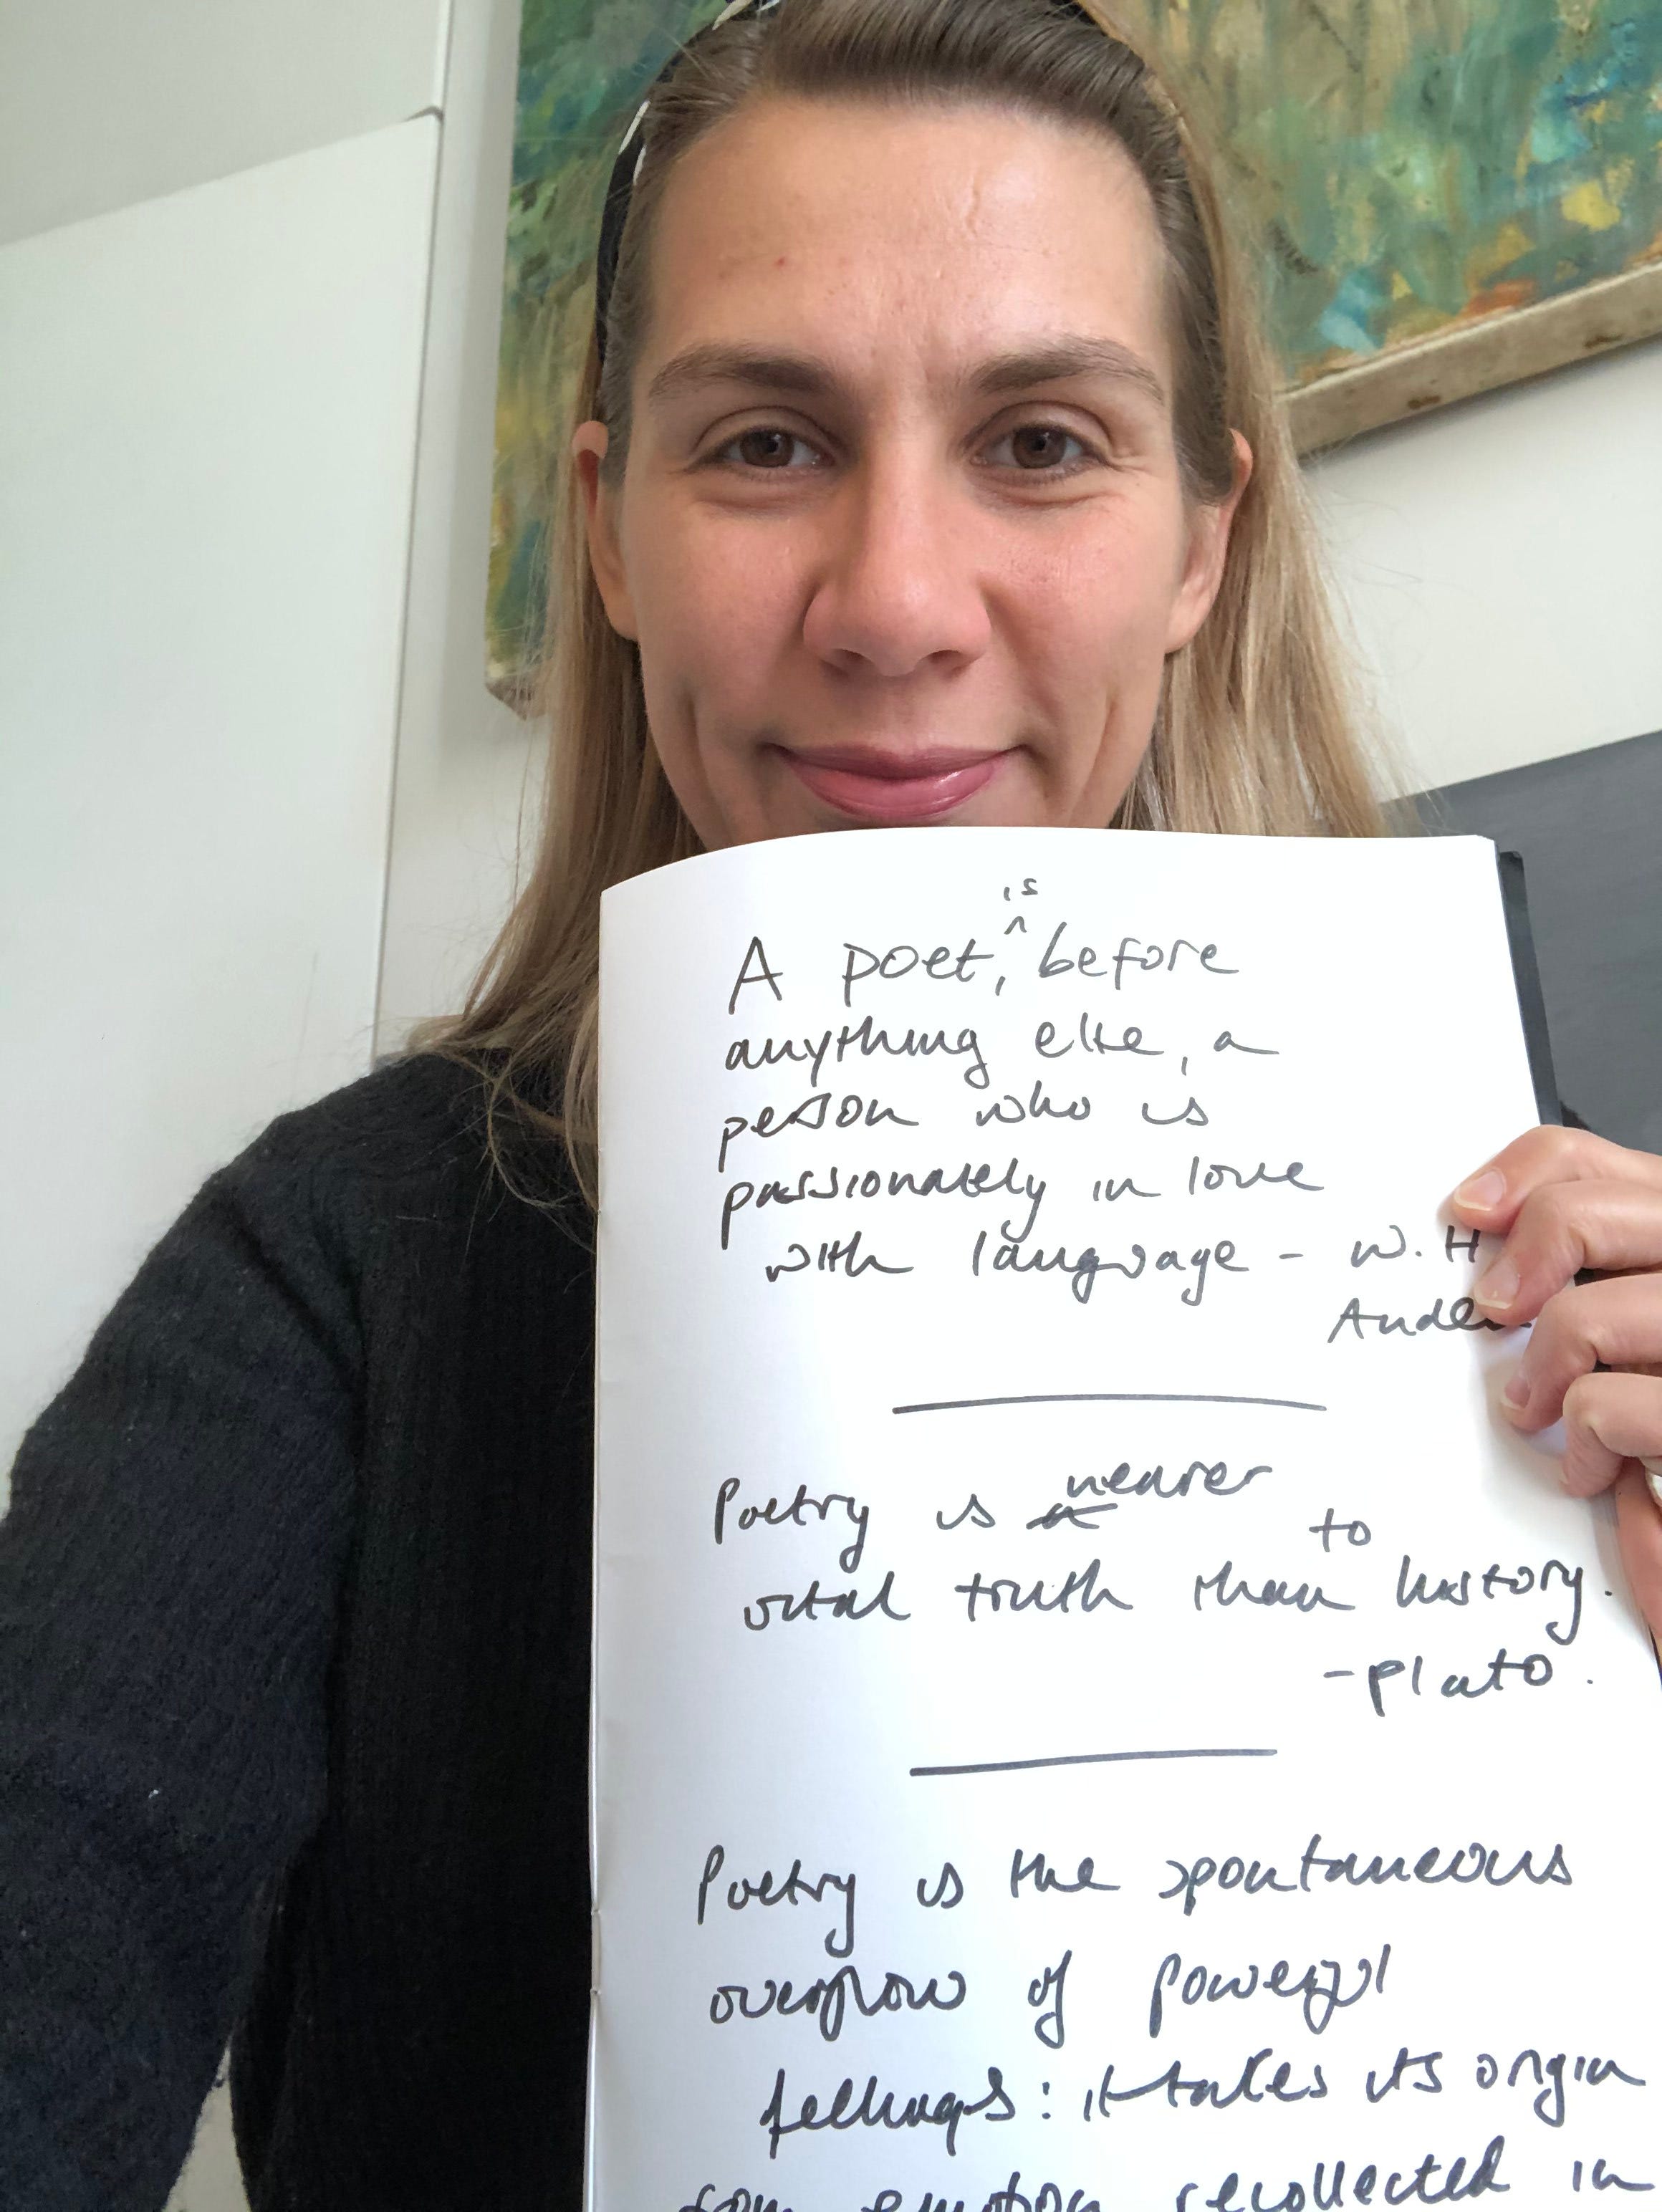 is
A poet, ^ before
anything else, a
person who is
passionately in love
with language - W. H
Auden
Poetry is nearer
to
vital truth than history.
- plato.
Poetry is the spontaneous
overflow of powerful
feelings: it takes its origin
from emotion recollected in